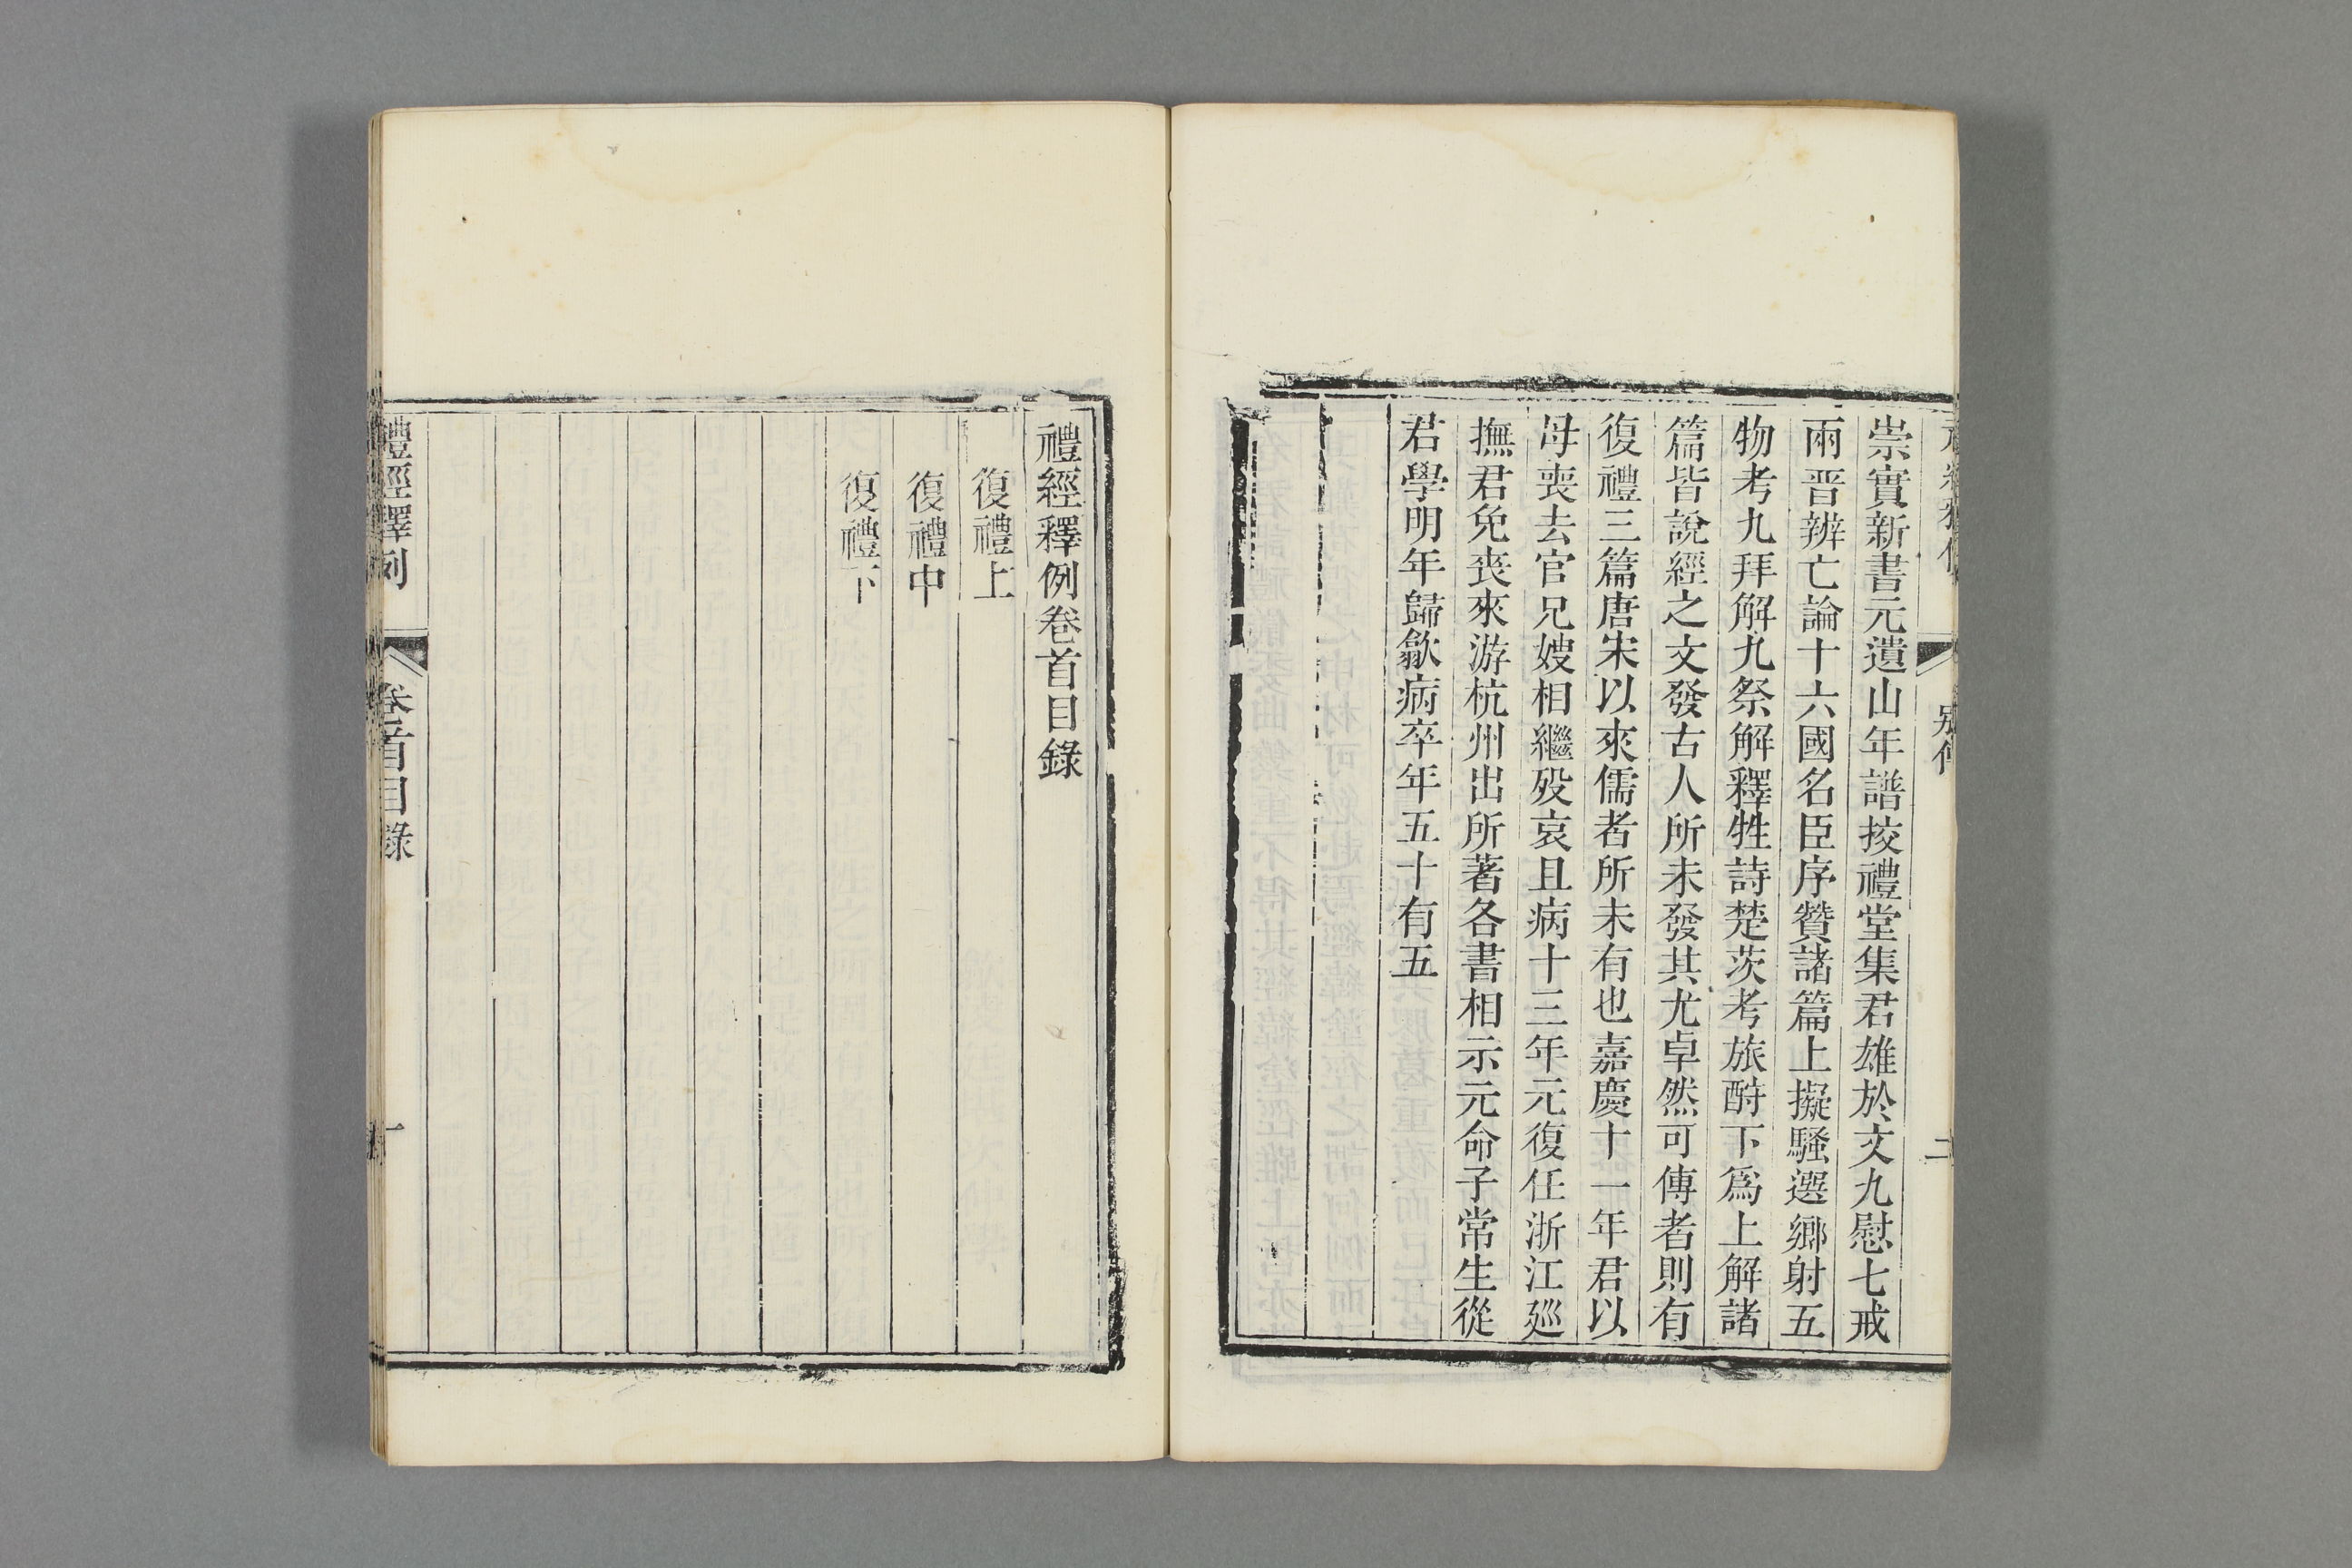 崇實新書元遺山年譜挍禮堂集君雄於文九慰七戒
兩晋辨亡論十六國名臣序贊諸篇上擬騷選鄉射五
物考九拜解九祭解釋牲詩楚茨考旅酬下爲上解諸
篇皆說經之文發古人所未發其尤卓然可傳者則有
復禮三篇唐宋以來儒者所未有也嘉慶十一年君以
母喪去官兄嫂相繼殁哀且病十三年元復任浙江廵
撫君免喪來游杭州出所著各書相示元命子常生從
君學明年歸歙病卒年五十有五
別傳
二
禮經釋例卷首目錄
復禮上
復禮中
復禮下
禮經釋例
卷首目錄
一